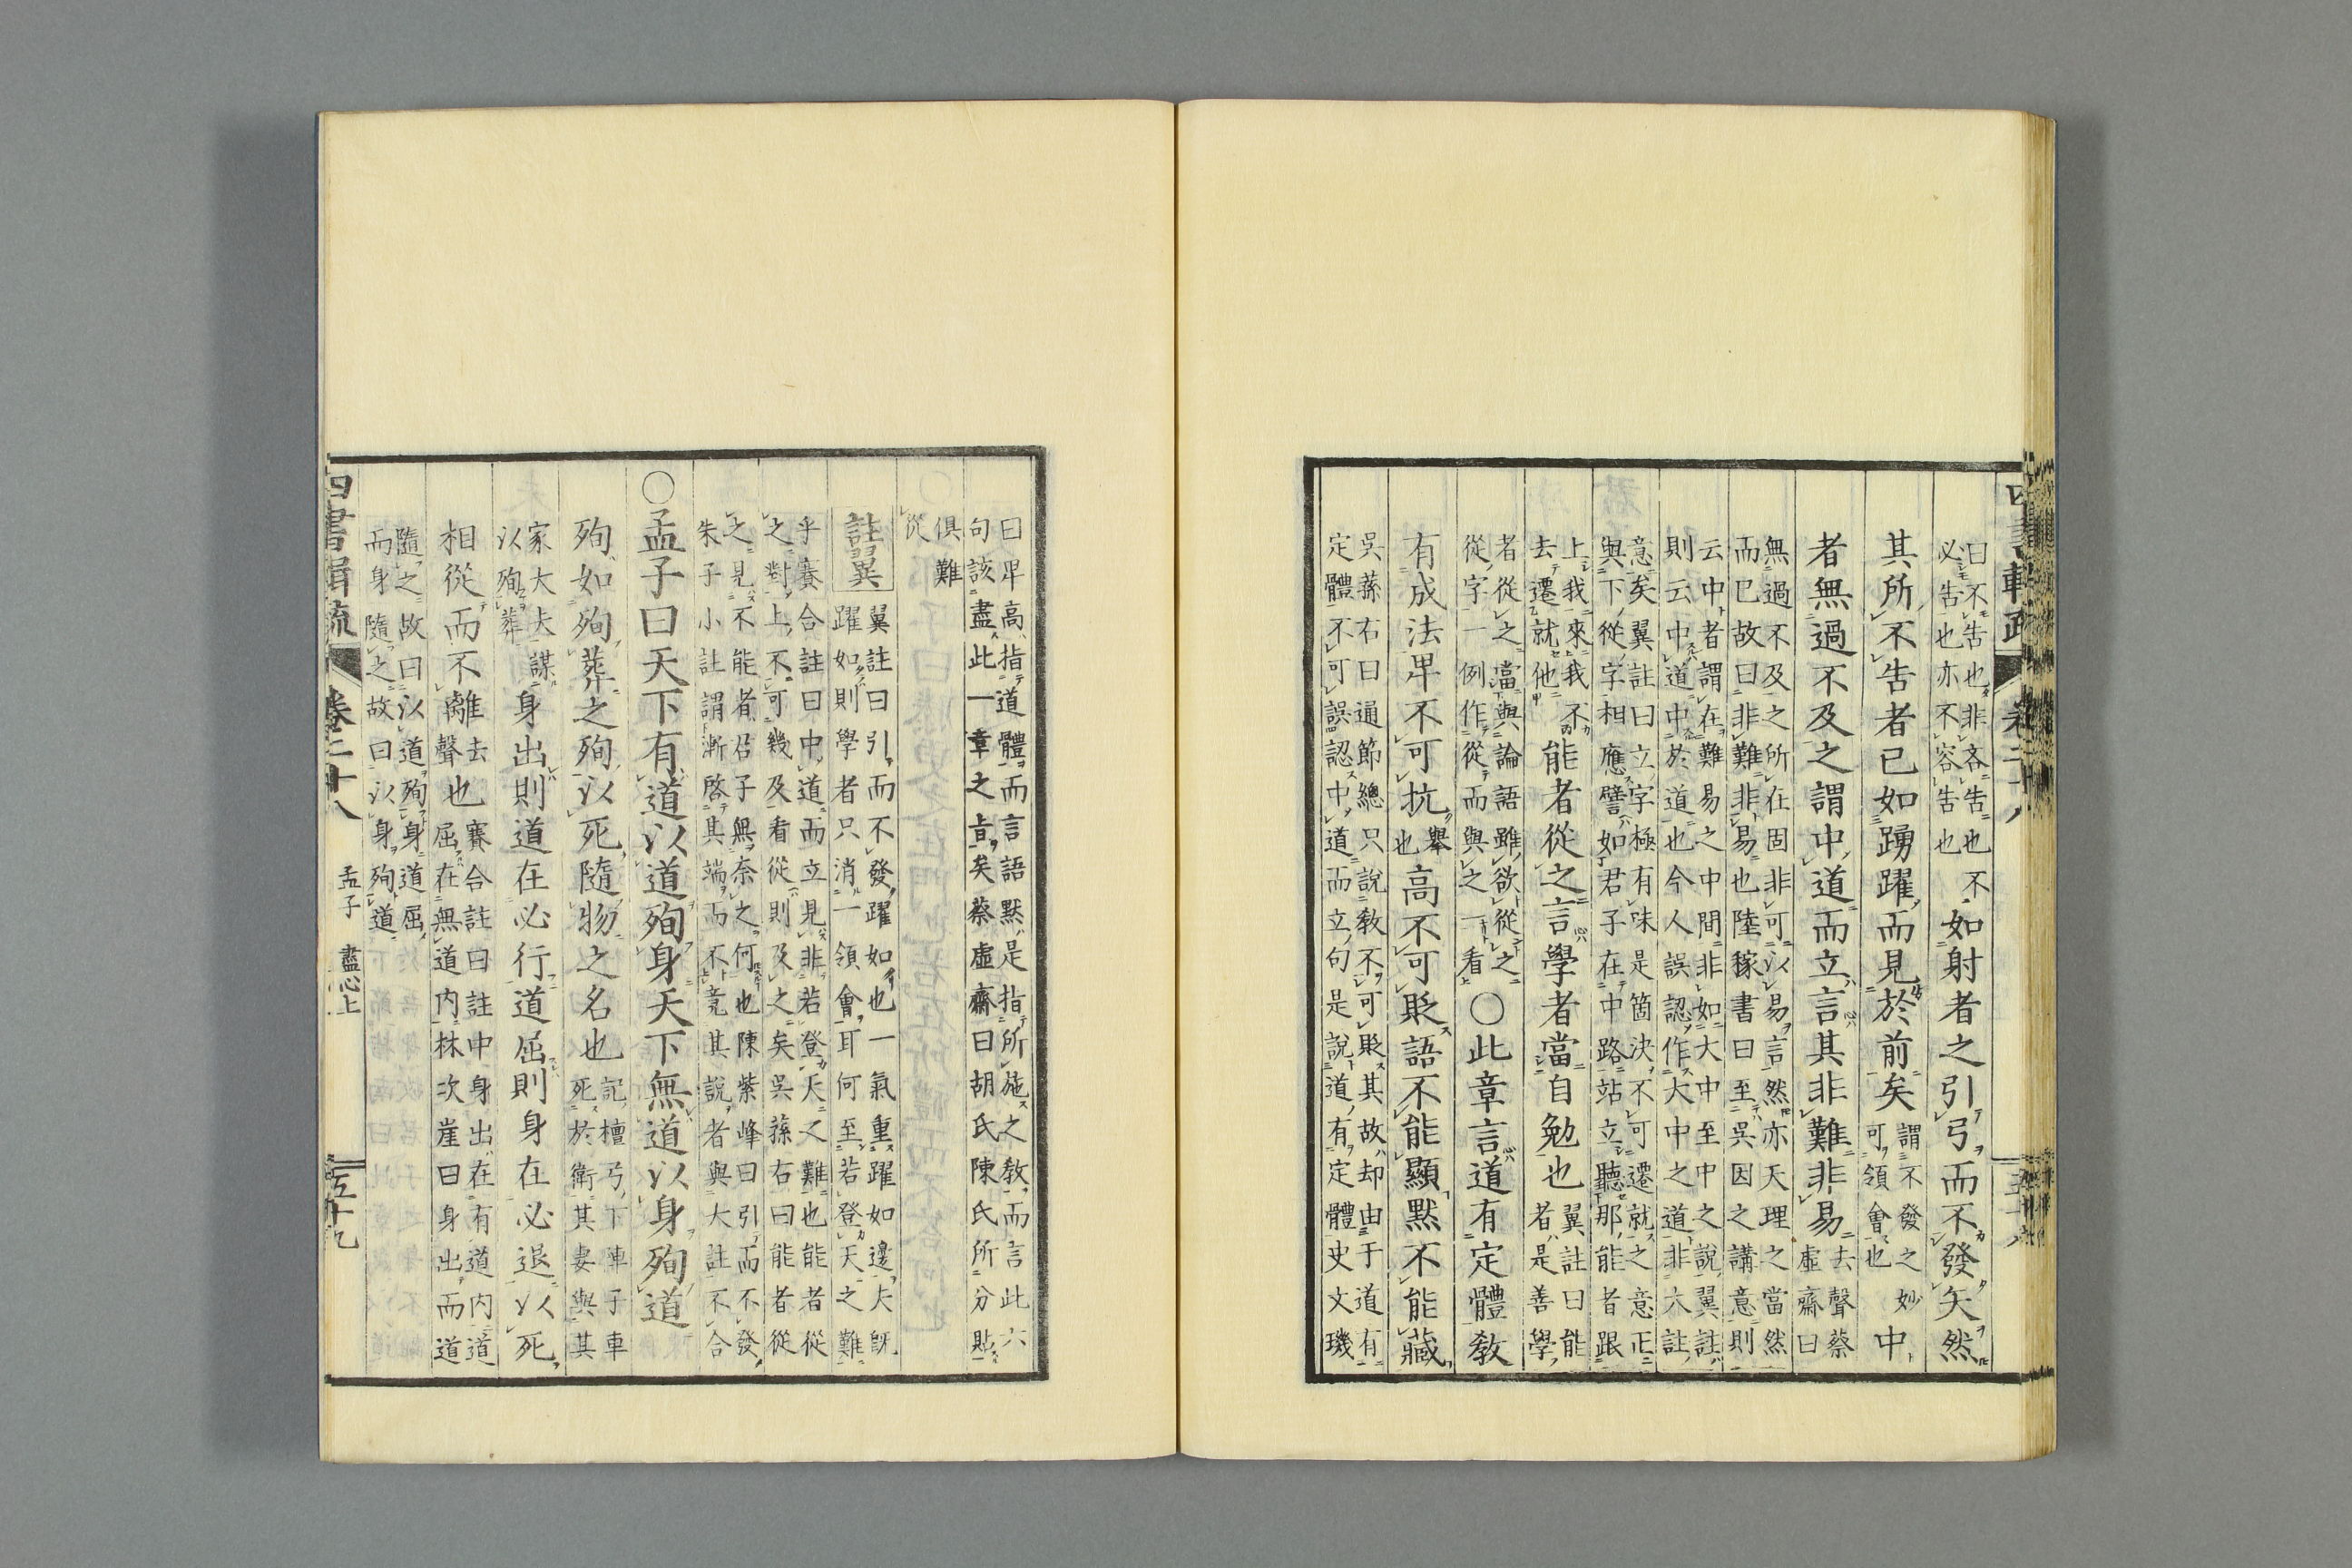 曰不告也非吝告也不
必告也亦不容告也
如射者之引弓而不發矢然
其所不告者已如踴躍而見於前矣
謂不發之妙
可領會也
中
者無過不及之謂中道而立言其非難非易
去聲蔡
虛齋曰
無過不及之所在固非可以易言然亦天理之當然
而已故曰非難非易也陸稼書曰至吳因之講意則
云中者謂在難易之中間非如大中至中之說翼註
則云中道中於道也今人誤認作大中之道非大註
意矣翼註曰立字極有味是箇決不可遷就之意正
與下從字相應譬如君子在中路站立聽那能者跟
上我來我不
去遷就他
能者從之言學者當自勉也
翼註曰能
者是善學
者從之當與論語雖欲從之
從字一例作從而與之一看
○此章言道有定體教
有成法卑不可抗
舉
也
高不可貶語不能顯默不能藏
吳蓀右曰通節總只說教不可貶其故却由于道有
定體不可誤認中道而立句是說道有定體史文璣
曰卑高指道體而言語默是指所施之教而言此六
句該盡此一章之旨矣蔡虛齋曰胡氏陳氏所分貼
俱難
從
註翼
翼註曰引而不發躍如也一氣重躍如邊夫旣
躍如則學者只消一領會耳何至若登天之難
乎賽合註曰中道而立見非若登天之難也能者從
之對上不可幾及看從則及之矣吳蓀右曰能者從
之見不能者君子無奈之何也陳紫峰曰引而不發
朱子小註謂漸啓其端而不竟其說者與大註不合
○孟子曰天下有道以道殉身天下無道以身殉道
殉如殉葬之殉以死隨物之名也
記檀弓下陳子車
死於衛其妻與其
家大夫謀
以殉葬
身出則道在必行道屈則身在必退以死
相從而不離
去
聲
也
賽合註曰註中身出在有道內道
屈在無道內林次崖曰身出而道
隨之故曰以道殉身道屈
而身隨之故曰以身殉道
四書輯疏
卷二十八
孟子
盡心上
五十九